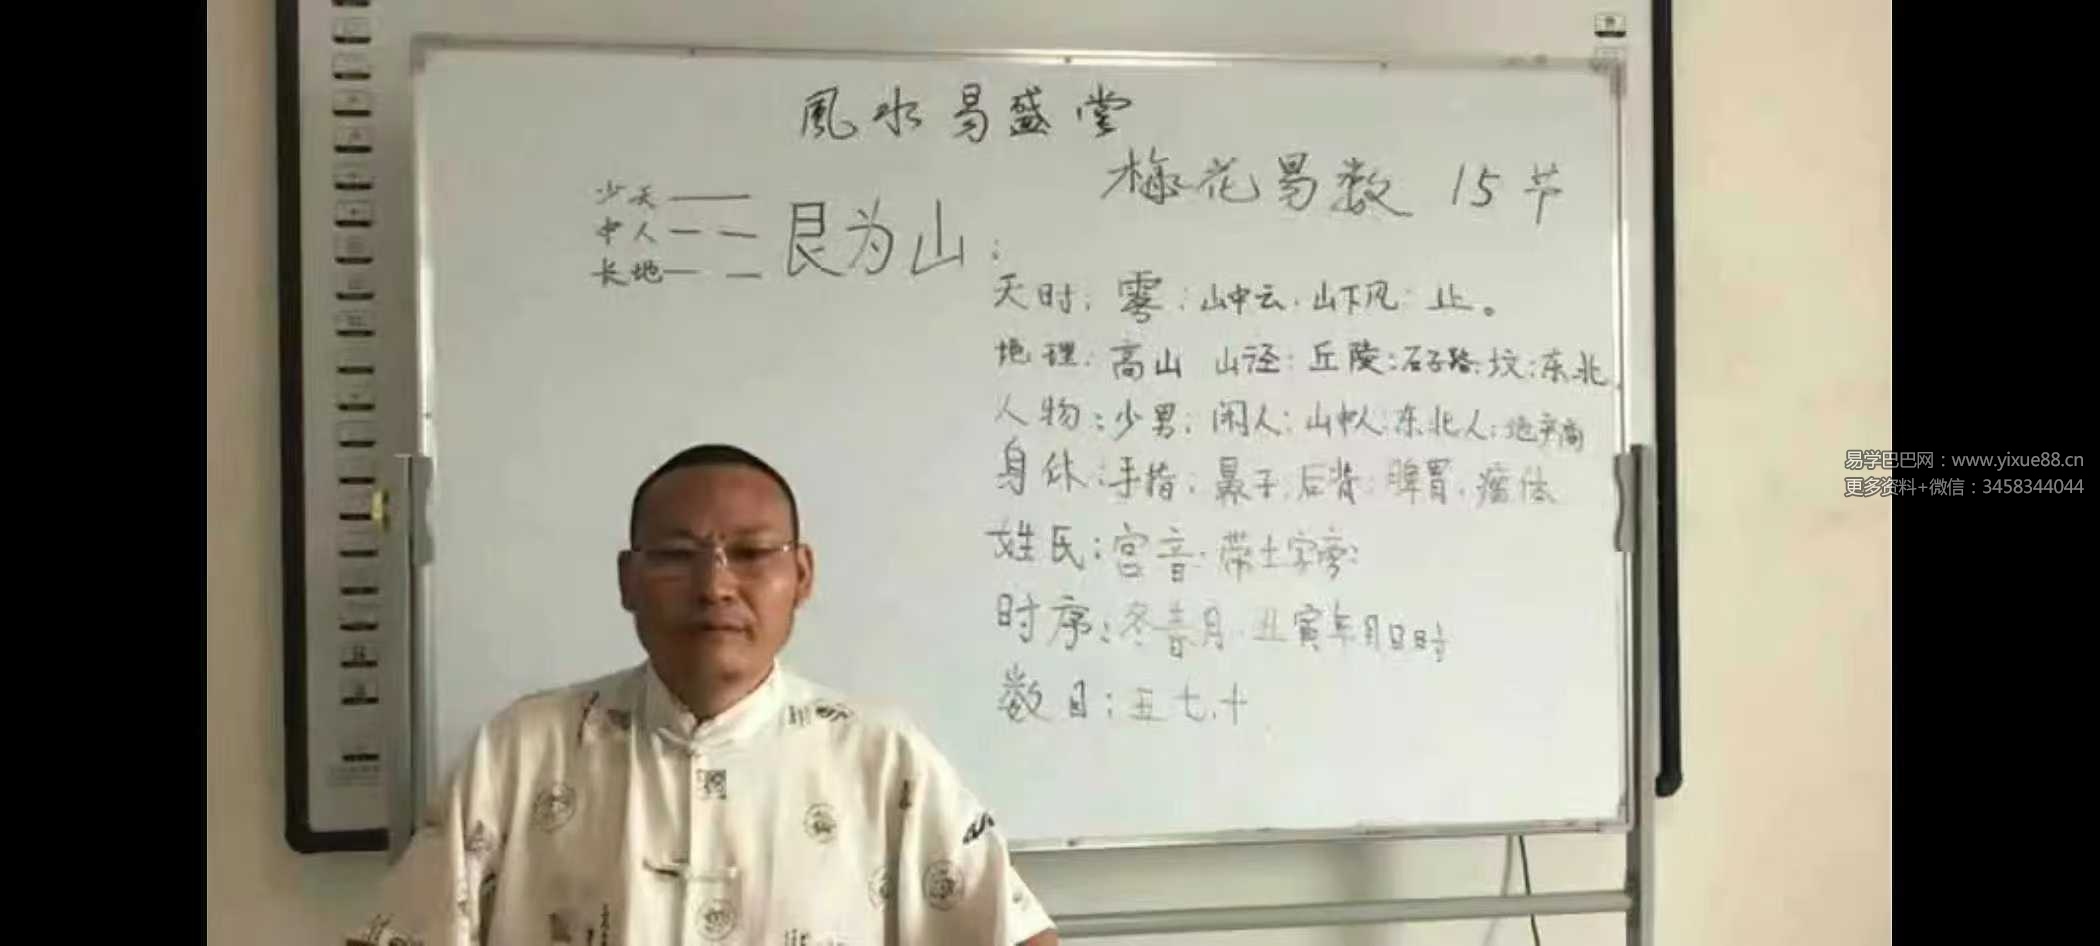 風水易盛堂
梅花易数 15节
少天
中人 艮为山：
长地
天时：雾：山中云．山下风：止。
地理：高山 山径：丘陵：石子路：坟：东北
人物：少男：闲人：山中人：东北人：地产商
身体：手指：鼻子：后背：脾胃．瘤体
姓氏：宫音．带土字旁：
时序：冬春月．丑寅年月日时
数目：五七．十
易学巴巴网：www.yixue88.cn
更多资料+微信：3458344044